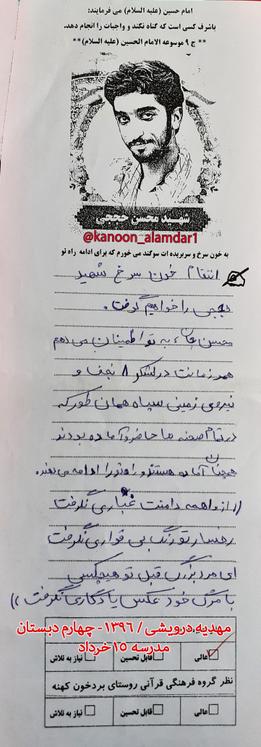 امام حسین (علیه السلام) می فرمایند:
باشرف کسی است که گناه نکند و واجبات را انجام دهد.
** ج ۹ موسوعه الامام الحسین (علیه السلام) **
شهید محسن حججی
@kanoon_alamdar1
به خون سرخ و سربریده ات سوگند می خورم که برای ادامه راه تو
انتقام خون سرخ شهید
حججی را خواهیم گرفت.
محسن جان، به تو اطمینان می دهم
همرزمانت در لشکر ۸ نجف و
نیروی زمینی سپاه همان طور که
در تمام صحنه ها حاضر و آماده بودند
همچنان آماده هستند و راه تو را ادامه می دهند.
((از واهمه دامنت غباری نگرفت
رخسار تو رنگ بی قراری نگرفت
ای مرد بزرگ قبل تو هیچکسی
با مرگ خود عکس یادگاری نگرفت))
مهدیه درویشی / ۱۳۹۶ - چهارم دبستان
مدرسه ۱۵ خرداد
عالی قابل تحسین نیاز به تلاش
نظر گروه فرهنگی قرآنی روستای بردخون کهنه
عالی قابل تحسین نیاز به تلاش